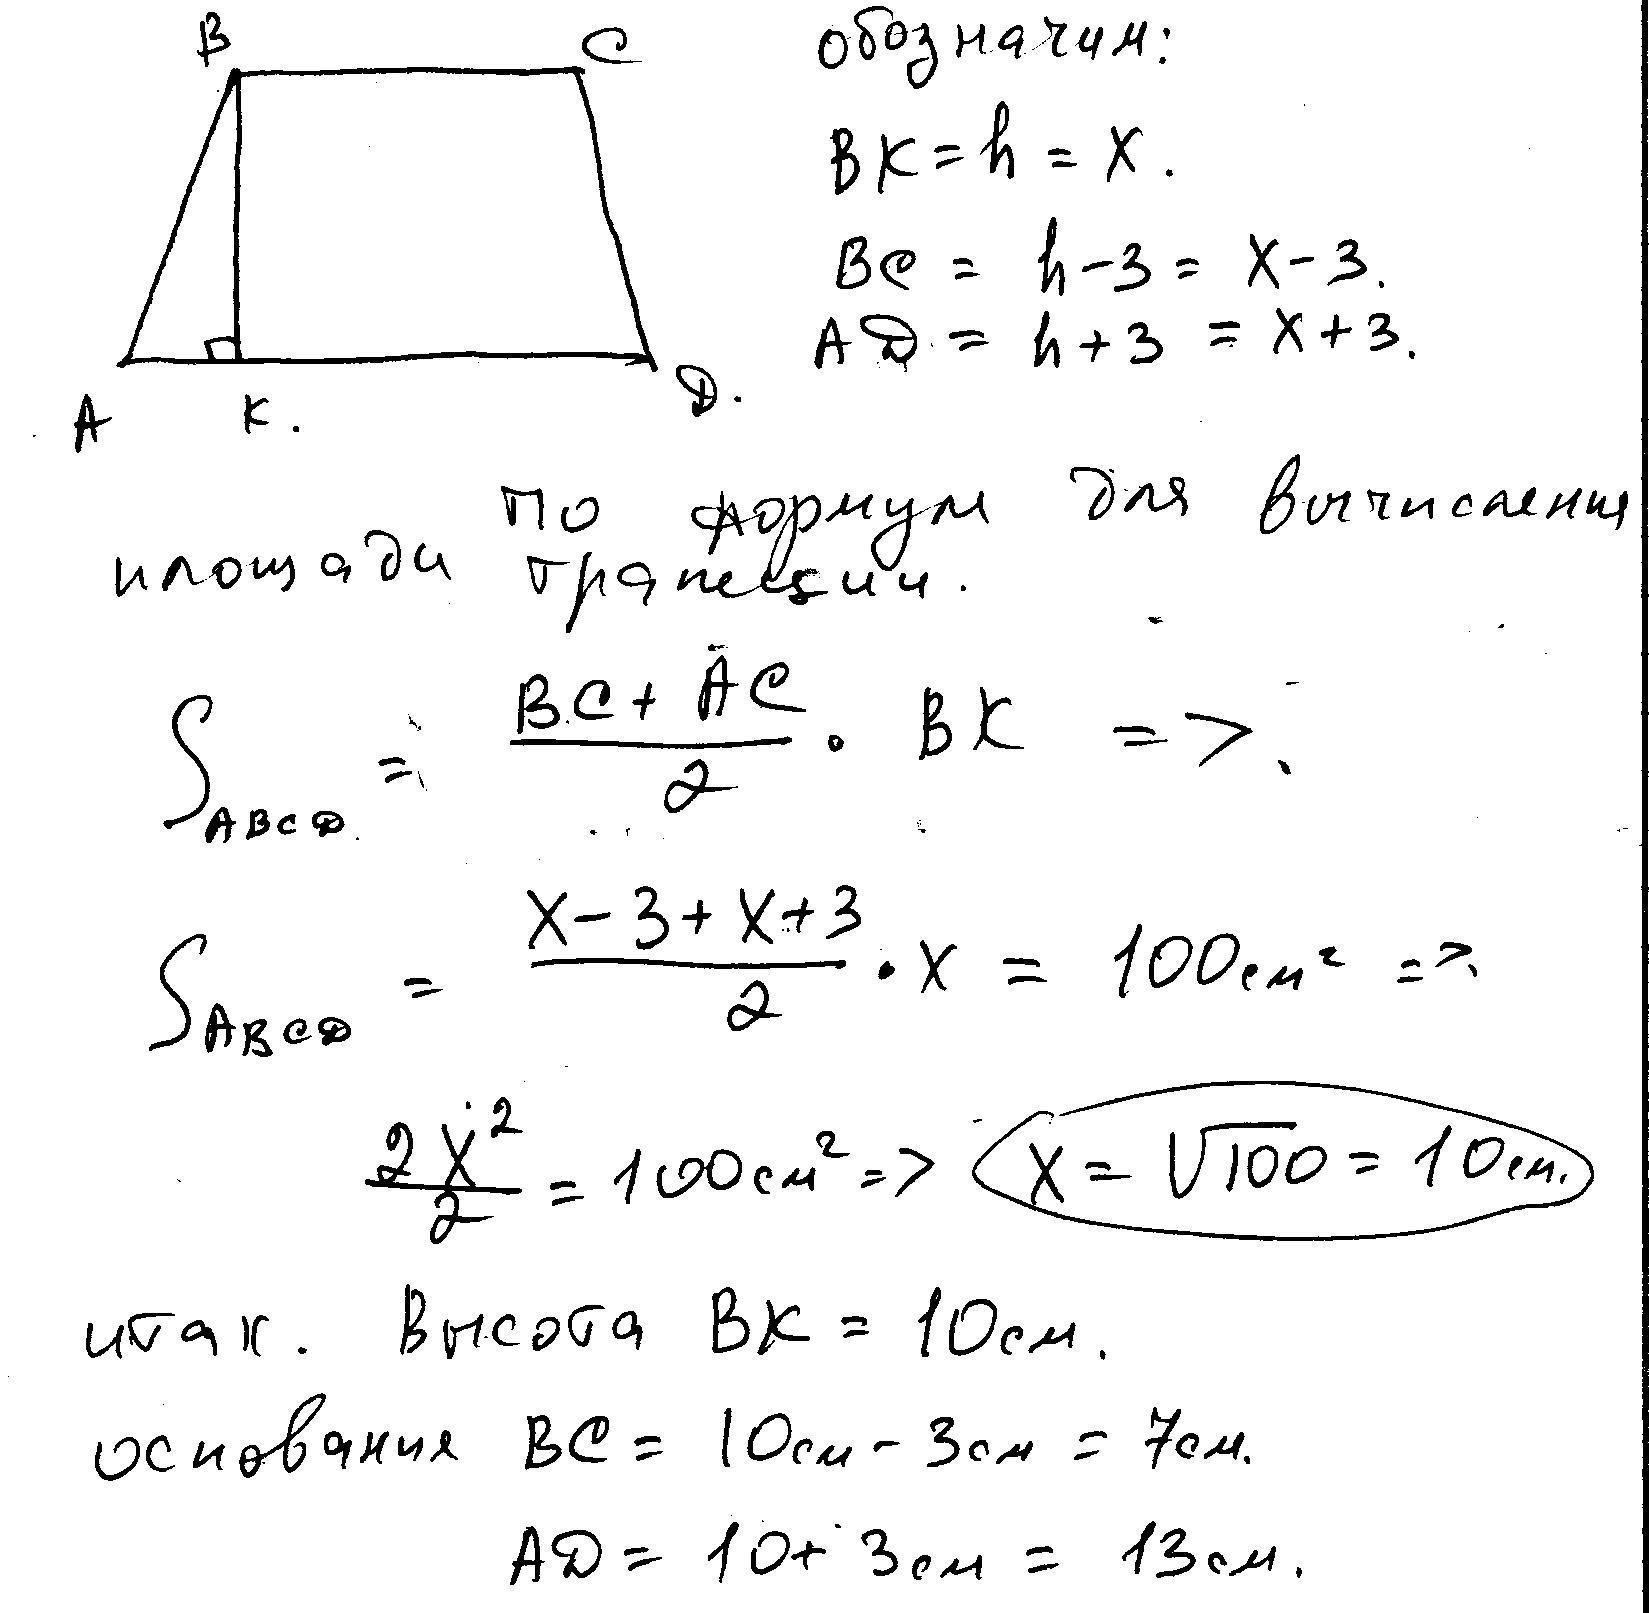 B C
A K. D.
обозначим:
BK = h = X.
BC = h - 3 = X - 3.
AD = h + 3 = X + 3.
По формул для вычисления
площади трапеции.
S ABCD = BC + AC / 2 · BK =>.
S ABCD = X - 3 + X + 3 / 2 · X = 100см² =>.
2X² / 2 = 100см² => X = √100 = 10см.
итак. Высота BK = 10см.
основания BC = 10см - 3см = 7см.
AD = 10 + 3см = 13см.